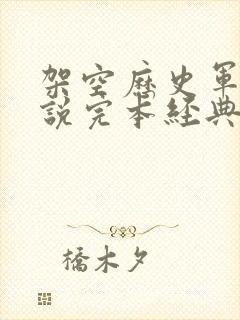 架空历史軍
說完本經典
橋木夕